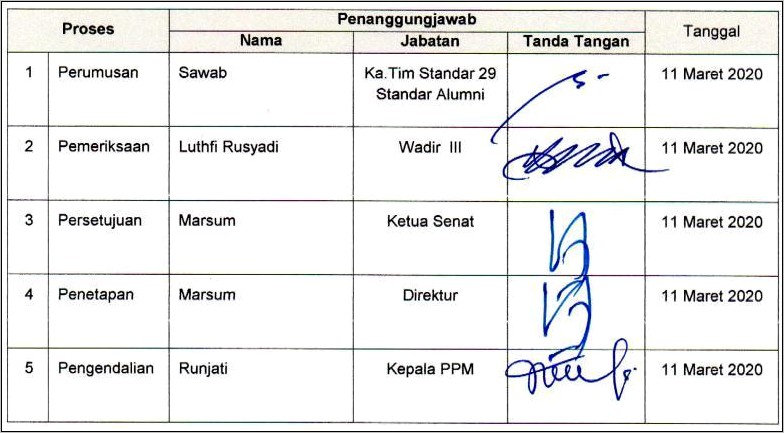 Proses Penanggungjawab Tanggal
Nama Jabatan Tanda Tangan
1 Perumusan Sawab Ka.Tim Standar 29 11 Maret 2020
Standar Alumni
2 Pemeriksaan Luthfi Rusyadi Wadir III 11 Maret 2020
3 Persetujuan Marsum Ketua Senat 11 Maret 2020
4 Penetapan Marsum Direktur 11 Maret 2020
5 Pengendalian Runjati Kepala PPM 11 Maret 2020